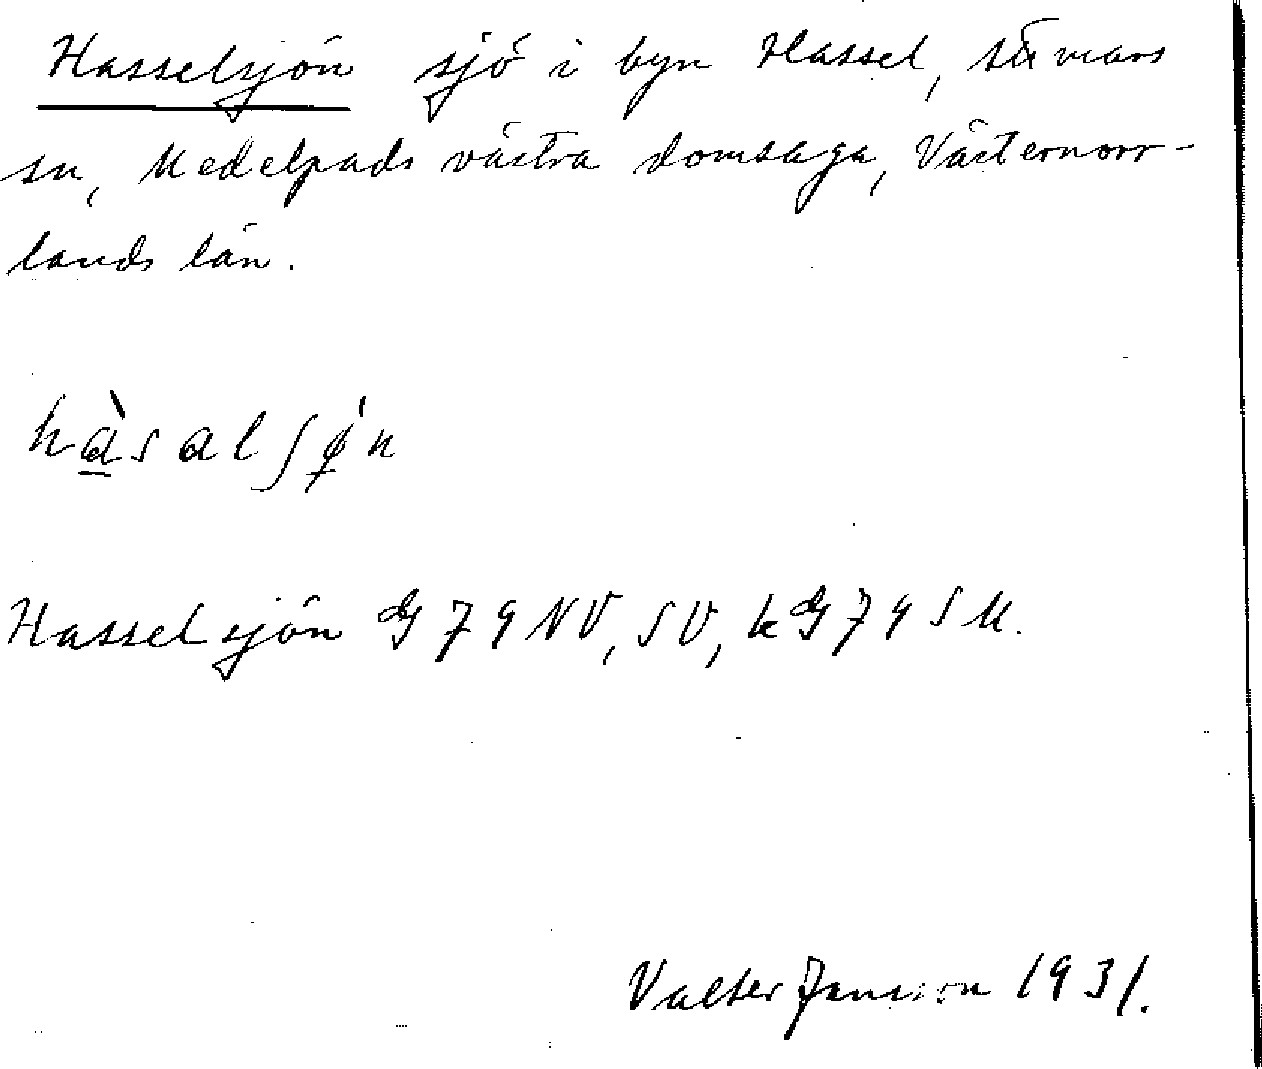 Hasselsjön sjö i byn Hassel, Stöde
sn, Medelpads västra domsaga, Västernorr-
lands län.
hàsalʃǿn
Hasselsjön G 79 NV, SV, kG 79 SU.
Valter Jansson 1931.